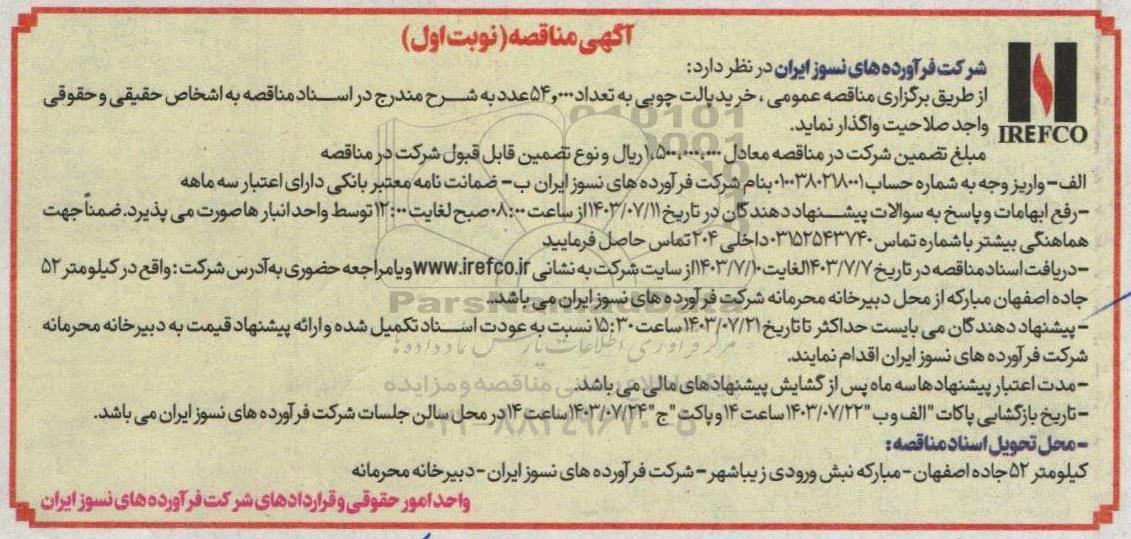 آگهی مناقصه (نوبت اول)
شرکت فرآورده های نسوز ایران در نظر دارد:
از طریق برگزاری مناقصه عمومی ، خرید پالت چوبی به تعداد ۵۴٫۰۰۰ عدد به شرح مندرج در اسناد مناقصه به اشخاص حقیقی و حقوقی
واجد صلاحیت واگذار نماید.
IREFCO
مبلغ تضمین شرکت در مناقصه معادل ۱،۵۰۰،۰۰۰،۰۰۰ ریال و نوع تضمین قابل قبول شرکت در مناقصه
الف- واریز وجه به شماره حساب ۰۱۰۰۳۸۰۲۱۸۰۰۱ بنام شرکت فرآورده های نسوز ایران ب- ضمانت نامه معتبر بانکی دارای اعتبار سه ماهه
-رفع ابهامات و پاسخ به سوالات پیشنهاد دهندگان در تاریخ ۱۴۰۳/۰۷/۱۱ از ساعت ۰۸:۰۰ صبح لغایت ۱۲:۰۰ توسط واحد انبارها صورت می پذیرد. ضمناً جهت
هماهنگی بیشتر با شماره تماس ۰۳۱۵۲۵۴۳۷۴۰ داخلی ۲۰۴ تماس حاصل فرمایید
-دریافت اسناد مناقصه در تاریخ ۱۴۰۳/۷/۷ لغایت ۱۴۰۳/۷/۱۰ از سایت شرکت به نشانی www.irefco.ir و یا مراجعه حضوری به آدرس شرکت : واقع در کیلومتر ۵۲
جاده اصفهان مبارکه از محل دبیرخانه محرمانه شرکت فرآورده های نسوز ایران می باشد.
- پیشنهاد دهندگان می بایست حداکثر تا تاریخ ۱۴۰۳/۰۷/۲۱ ساعت ۱۵:۳۰ نسبت به عودت اسناد تکمیل شده و ارائه پیشنهاد قیمت به دبیرخانه محرمانه
شرکت فرآورده های نسوز ایران اقدام نمایند.
- مدت اعتبار پیشنهادها سه ماه پس از گشایش پیشنهادهای مالی می باشد
-تاریخ بازگشایی پاکات "الف و ب" ۱۴۰۳/۰۷/۲۲ ساعت ۱۴ و پاکت "ج" ۱۴۰۳/۰۷/۲۴ ساعت ۱۴ در محل سالن جلسات شرکت فرآورده های نسوز ایران می باشد.
- محل تحویل اسناد مناقصه:
کیلومتر ۵۲ جاده اصفهان - مبارکه نبش ورودی زیباشهر - شرکت فرآورده های نسوز ایران - دبیرخانه محرمانه
واحد امور حقوقی و قراردادهای شرکت فرآورده های نسوز ایران
ParsNamadData